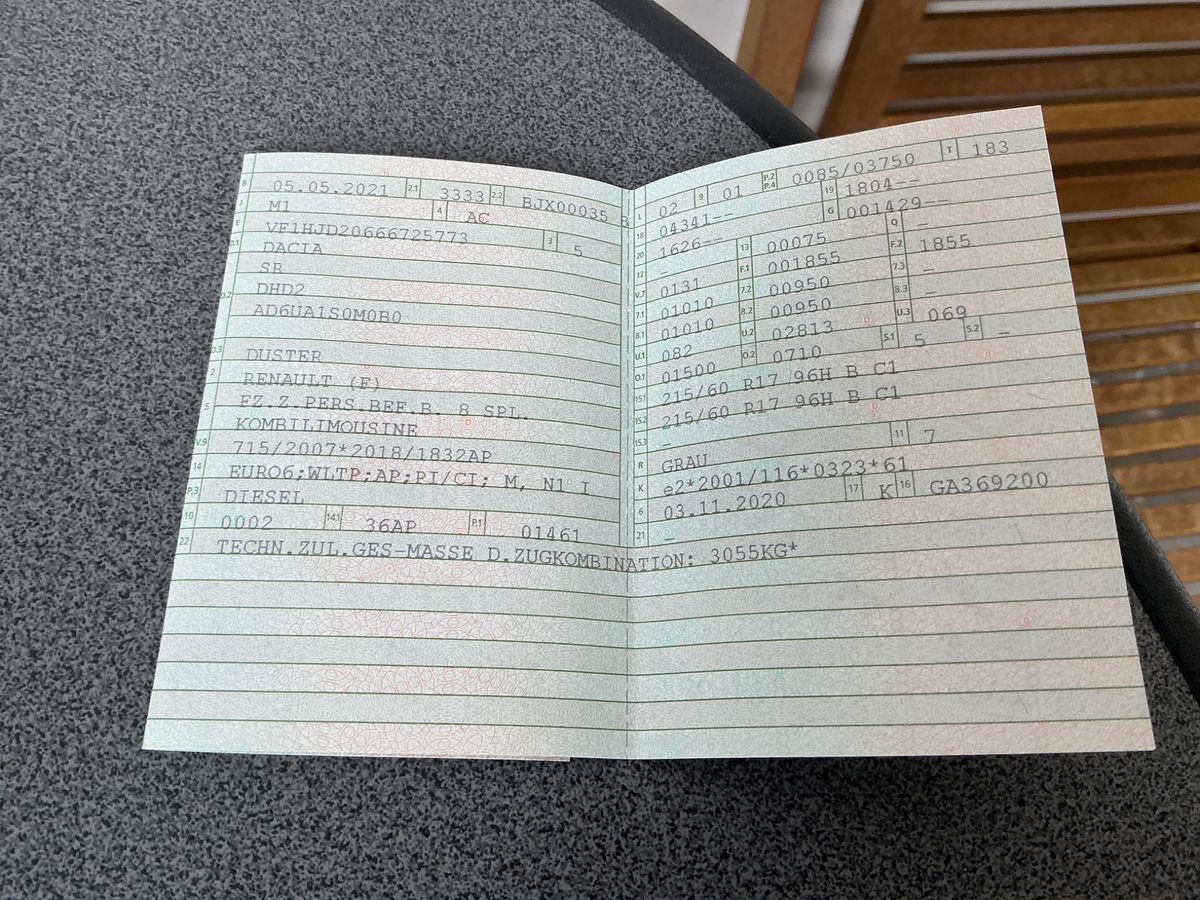 B 05.05.2021 2.1 3333 2.2 BJX00035 8
J M1 4 AC
E VF1HJD20666725773 3 5
D.1 DACIA
SR
D.2 DHD2
AD6UA1S0M0B0
D.3 DUSTER
2 RENAULT (F)
FZ.Z.PERS.BEF.B. 8 SPL.
5 KOMBILIMOUSINE
V.9 715/2007*2018/1832AP
14 EURO6;WLTP;AP;PI/CI; M, N1 I
P.3 DIESEL
10 0002 14.1 36AP P.1 01461
22 TECHN.ZUL.GES-MASSE D.ZUGKOMBINATION: 3055KG*
L 02 9 01 P.2 P.4 0085/03750 T 183
18 04341-- 19 1804--
20 1626-- G 001429--
12 - 13 00075 Q -
V.7 0131 F.1 001855 F.2 1855
7.1 01010 7.2 00950 7.3 -
8.1 01010 8.2 00950 8.3 -
U.1 082 U.2 02813 U.3 069
O.1 01500 O.2 0710 S.1 5 S.2 -
15.1 215/60 R17 96H B C1
15.2 215/60 R17 96H B C1
15.3 -
R GRAU 11 7
K e2*2001/116*0323*61
6 03.11.2020 17 K 16 GA369200
21